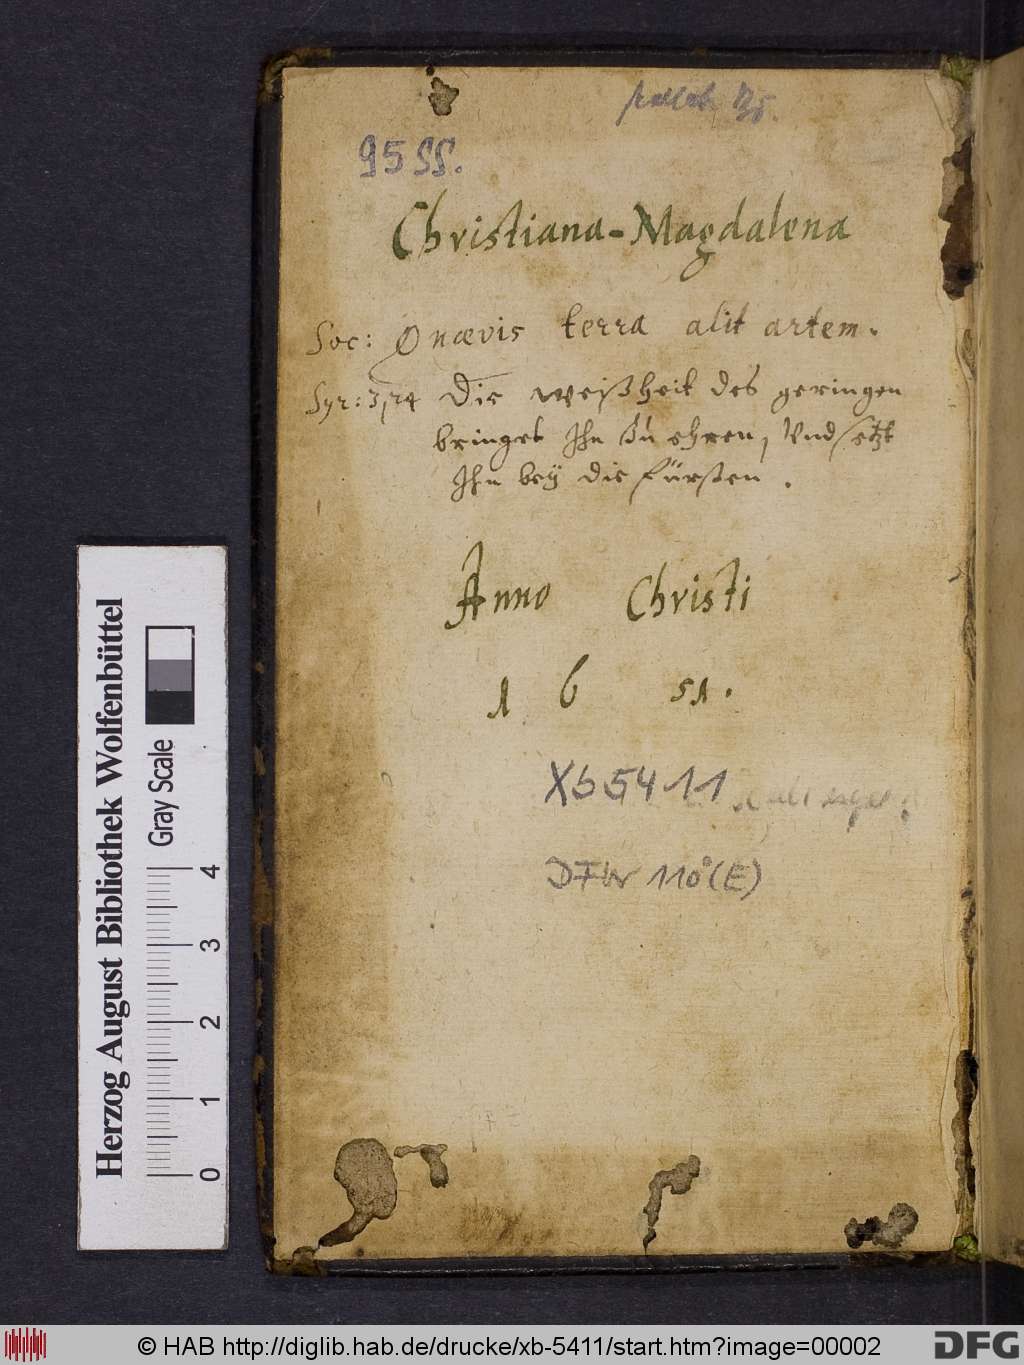 95 SS.
Christiana-Magdalena
Soc: Qnævis terra alit artem.
Syr: 3,74 Die weißheit des geringen
bringet Ihn zu ehren, Vnd setzt
Ihn beÿ die fürsten.
Anno Christi
1 6 51.
Xb 5411
DFW 110°(E)
Herzog August Bibliothek Wolfenbüttel
Gray Scale
0 1 2 3 4
© HAB http://diglib.hab.de/drucke/xb-5411/start.htm?image=00002
DFG